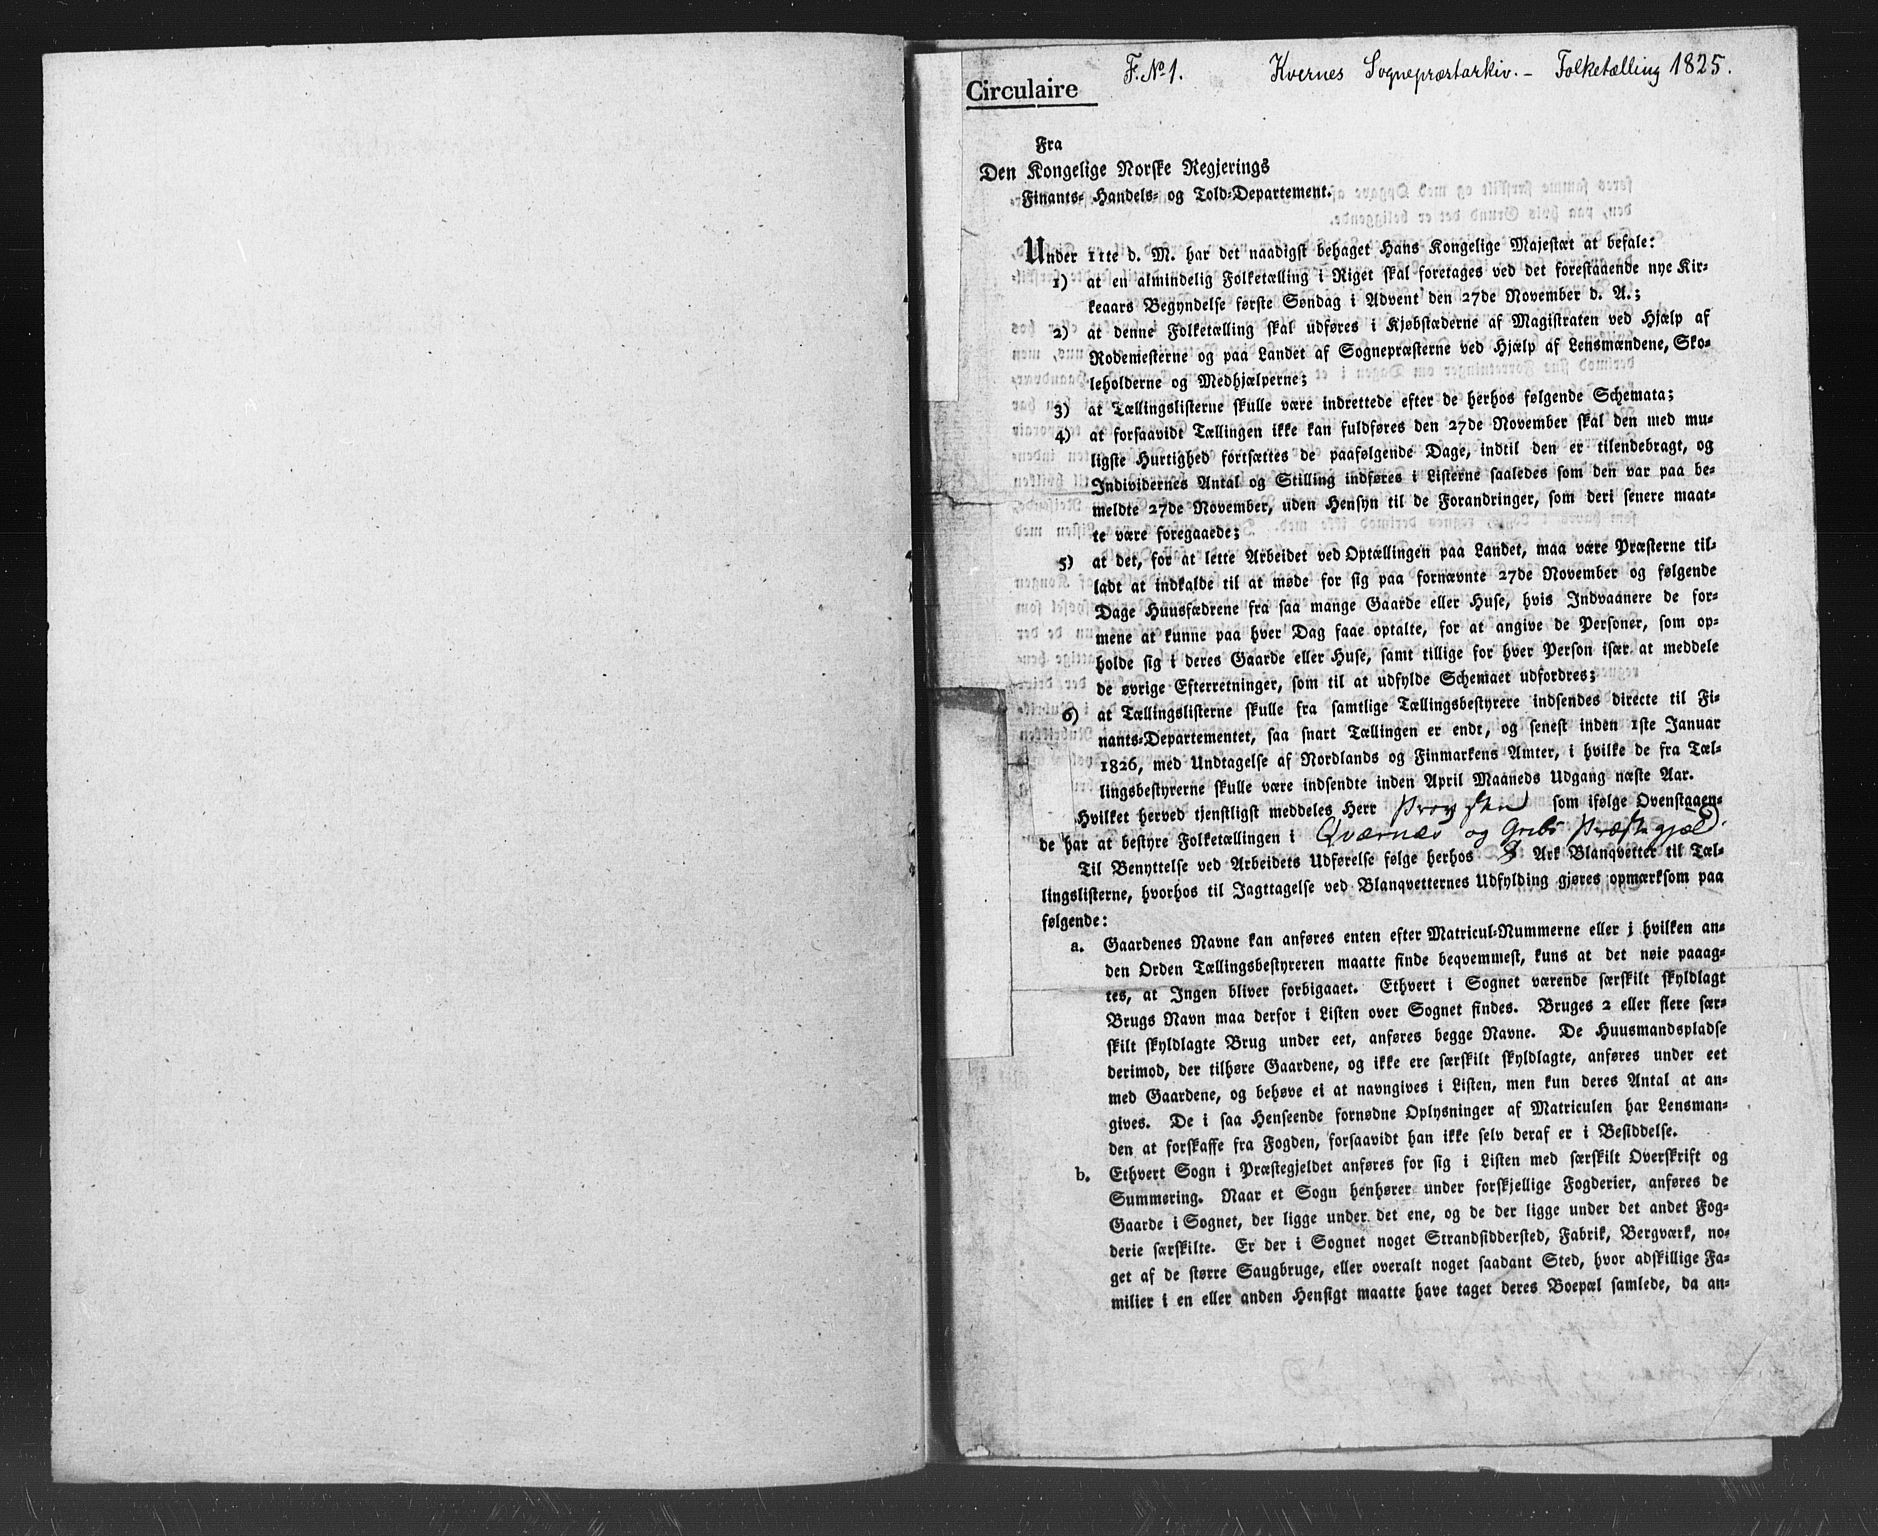 F. № 1. Kvernes Sognepræstarkiv. – Folketælling 1825.
Circulaire
Fra
Den Kongelige Norske Regjerings
Finants- Handels- og Told-Departement.
Under 11te d. M. har det naadigst behaget Hans Kongelige Majestæt at befale:
1) at en almindelig Folketælling i Riget skal foretages ved det forestaaende nye Kir-
keaars Begyndelse første Søndag i Advent den 27de November d. A.;
2) at denne Folketælling skal udføres i Kjøbstæderne af Magistraten ved Hjælp af
Rodemesterne og paa Landet af Sognepræsterne ved Hjælp af Lensmændene, Sko-
leholderne og Medhjælperne;
3) at Tællingslisterne skulle være indrettede efter de herhos følgende Schemata;
4) at forsaavidt Tællingen ikke kan fuldføres den 27de November skal den med mu-
ligste Hurtighed fortsættes de paafølgende Dage, indtil den er tilendebragt, og
Individernes Antal og Stilling indføres i Listerne saaledes som den var paa be-
meldte 27de November, uden Hensyn til de Forandringer, som deri senere maat-
te være foregaaede;
5) at det, for at lette Arbeidet ved Optællingen paa Landet, maa være Præsterne til-
ladt at indkalde til at møde for sig paa fornævnte 27de November og følgende
Dage Huusfædrene fra saa mange Gaarde eller Huse, hvis Indvaanere de for-
mene at kunne paa hver Dag faae optalte, for at angive de Personer, som op-
holde sig i deres Gaarde eller Huse, samt tillige for hver Person især at meddele
de øvrige Efterretninger, som til at udfylde Schemaet udfordres;
6) at Tællingslisterne skulle fra samtlige Tællingsbestyrere indsendes directe til Fi-
nants-Departementet, saa snart Tællingen er endt, og senest inden 1ste Januar
1826, med Undtagelse af Nordlands og Finmarkens Amter, i hvilke de fra Tæl-
lingsbestyrerne skulle være indsendte inden April Maaneds Udgang næste Aar.
Hvilket herved tjenstligst meddeles Herr Provsten som ifølge Ovenstaaen-
de har at bestyre Folketællingen i Qværnæs og Grib Præstegjæld.
Til Benyttelse ved Arbeidets Udførelse følge herhos Ark Blanqvetter til Tæl-
lingslisterne, hvorhos til Jagttagelse ved Blanqvetternes Udfylding gjøres opmærksom paa
følgende:
a. Gaardenes Navne kan anføres enten efter Matricul-Nummerne eller i hvilken an-
den Orden Tællingsbestyreren maatte finde beqvemmest, kuns at det nøie paaag-
tes, at Ingen bliver forbigaaet. Ethvert i Sognet værende særskilt skyldlagt
Brugs Navn maa derfor i Listen over Sognet findes. Bruges 2 eller flere sær-
skilt skyldlagte Brug under eet, anføres begge Navne. De Huusmandspladse
derimod, der tilhøre Gaardene, og ikke ere særskilt skyldlagte, anføres under eet
med Gaardene, og behøve ei at navngives i Listen, men kun deres Antal at an-
gives. De i saa Henseende fornødne Oplysninger af Matriculen har Lensman-
den at forskaffe fra Fogden, forsaavidt han ikke selv deraf er i Besiddelse.
b. Ethvert Sogn i Præstegjeldet anføres for sig i Listen med særskilt Overskrift og
Summering. Naar et Sogn henhører under forskjellige Fogderier, anføres de
Gaarde i Sognet, der ligge under det ene, og de der ligge under det andet Fog-
derie særskilte. Er der i Sognet noget Strandsiddersted, Fabrik, Bergværk, no-
get af de større Saugbruge, eller overalt noget saadant Sted, hvor adskillige Fa-
milier i en eller anden Hensigt maatte have taget deres Boepæl samlede, da an-